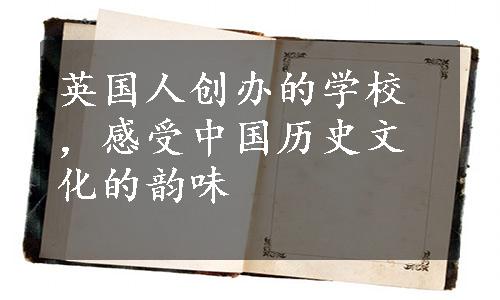 英国人创办的学校
，感受中国历史文
化的韵味